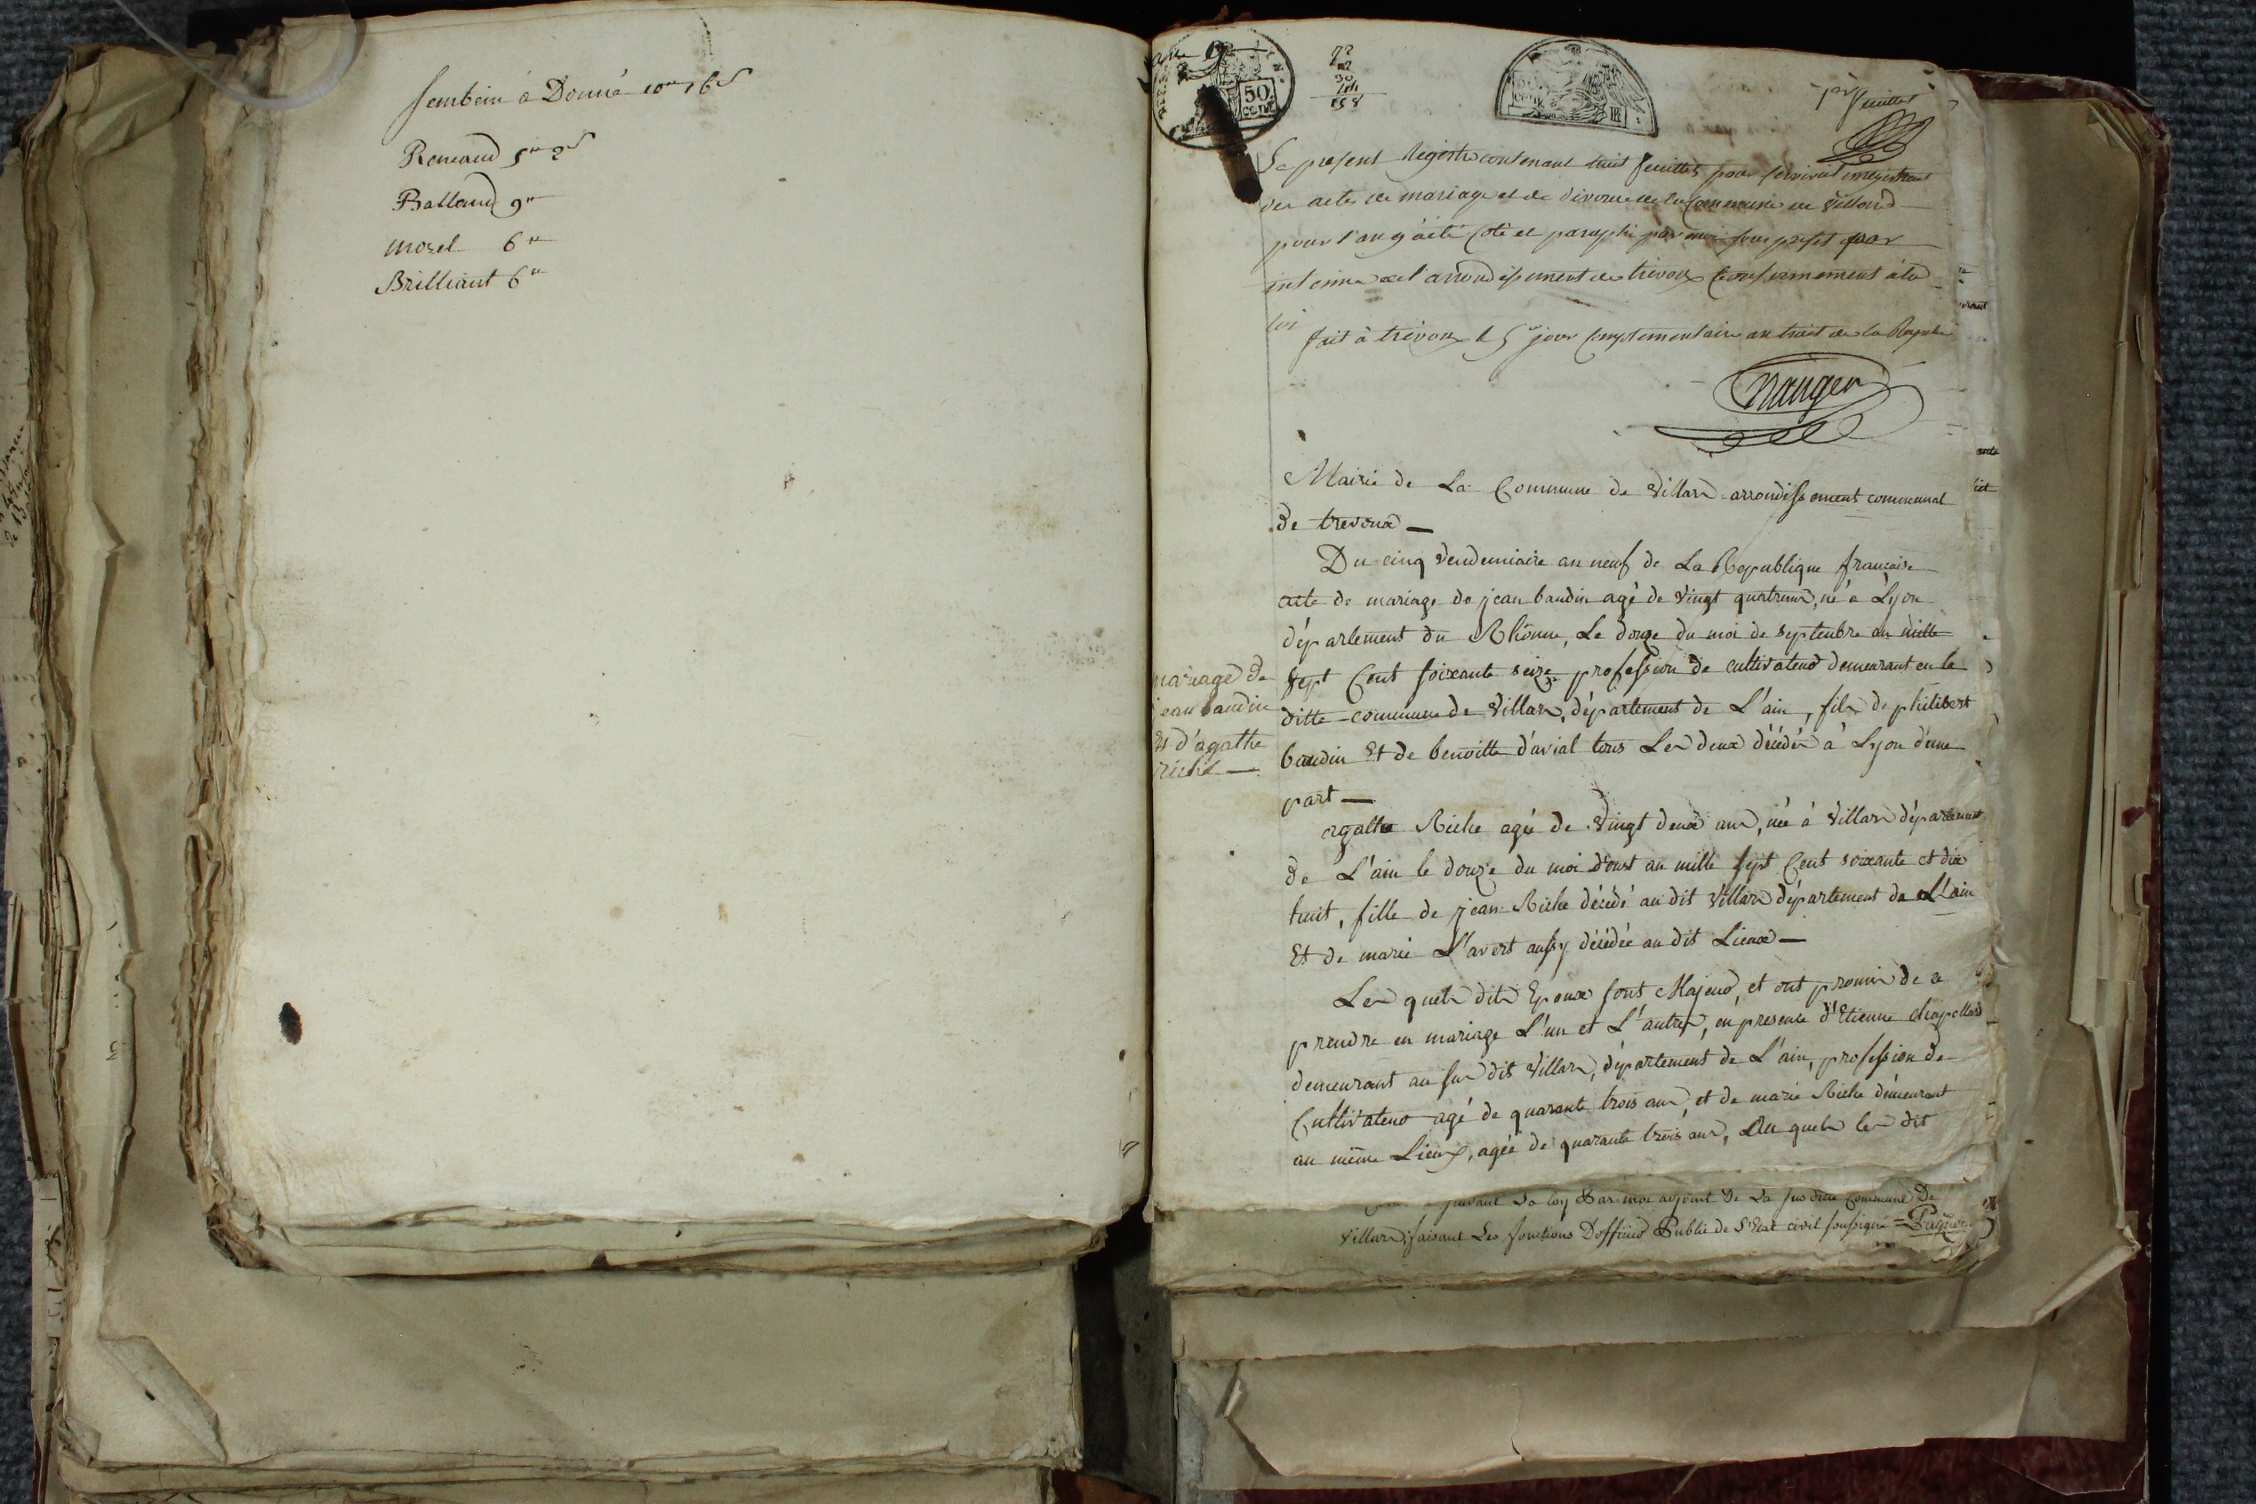 a Donné 10
Renaud
Balland 9
morel 6
Brilliant 6
50
cent
92
30
158
feuillet
Le present Registre contenant huit feuillets pour servir
des actes de mariage et de divorce de la Commune de Villard
pour l'an 9 a été Coté et paraphé par moi sous prefet par
interim de l'arrondissement de trevoux Conformement a la
loi
fait à trévoux le 5e jour Complementaire an huit de la
Mairie de La Commune de Villars arrondissement communal
de trevoux
Du cinq Vendemiaire an neuf de La Republique francaise
acte de mariage de jean baudin agé de vingt quatre ans, né a Lyon
département du Rhônne, Le douze du moi de septenbre an mille
sept Cent soixante seize profession de cultivateur demeurant en la
ditte commune de Villars, département de L'ain, fils de philibert
baudin Et de benoitte d'avial tous Les deux décédés à Lyon d'une
part
mariage de
jean baudin
Et d'agathe
riche
agathe Riche agée de Vingt deux ans, née à Villars département
de L'ain le douze du moi d'oust an mille sept Cent soixante et dix
huit, fille de jean Riche décédé au dit Villars département de L'ain
Et de marie L'avert aussy décédée au dit Lieux
Les quels dits Epoux sont Majeurs, et ont promis de se
prendre en mariage L'un et L'autre, en presence d'Etienne chapellard
demeurant au sus dit Villars, département de L'ain, profession de
Cultivateur agé de quarante trois ans, et de marie Riche demeurant
au même Lieux, agée de quarante trois ans, Au quels les dit
suivant La loy Par moi adjoint de La susditte Commune De
Villars, faisant Les fonctions D'officier Public de L'Etat civil soussigné